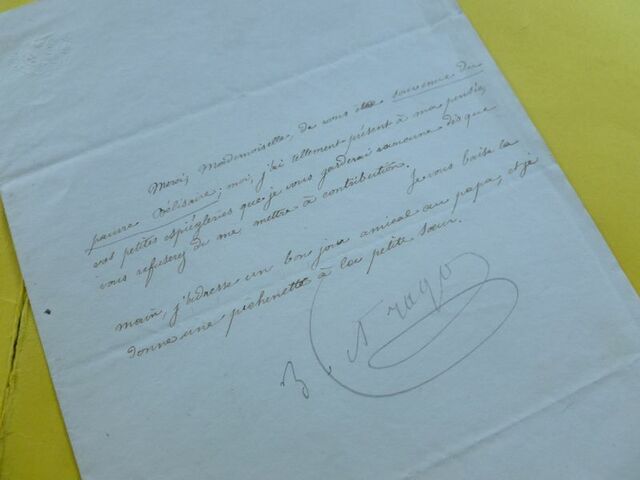 Merci, Mademoiselle, de vous être souvenue du
pauvre Bélisaire; moi, j'ai tellement présent à ma pensée,
vos petites espiègleries que je vous garderai rancune dès que
vous refuserez de me mettre à contribution.
Je vous baise la
main, j'adresse un bon jour amical au papa, et je
donne une pichenette à la petite sœur.
J. Arago